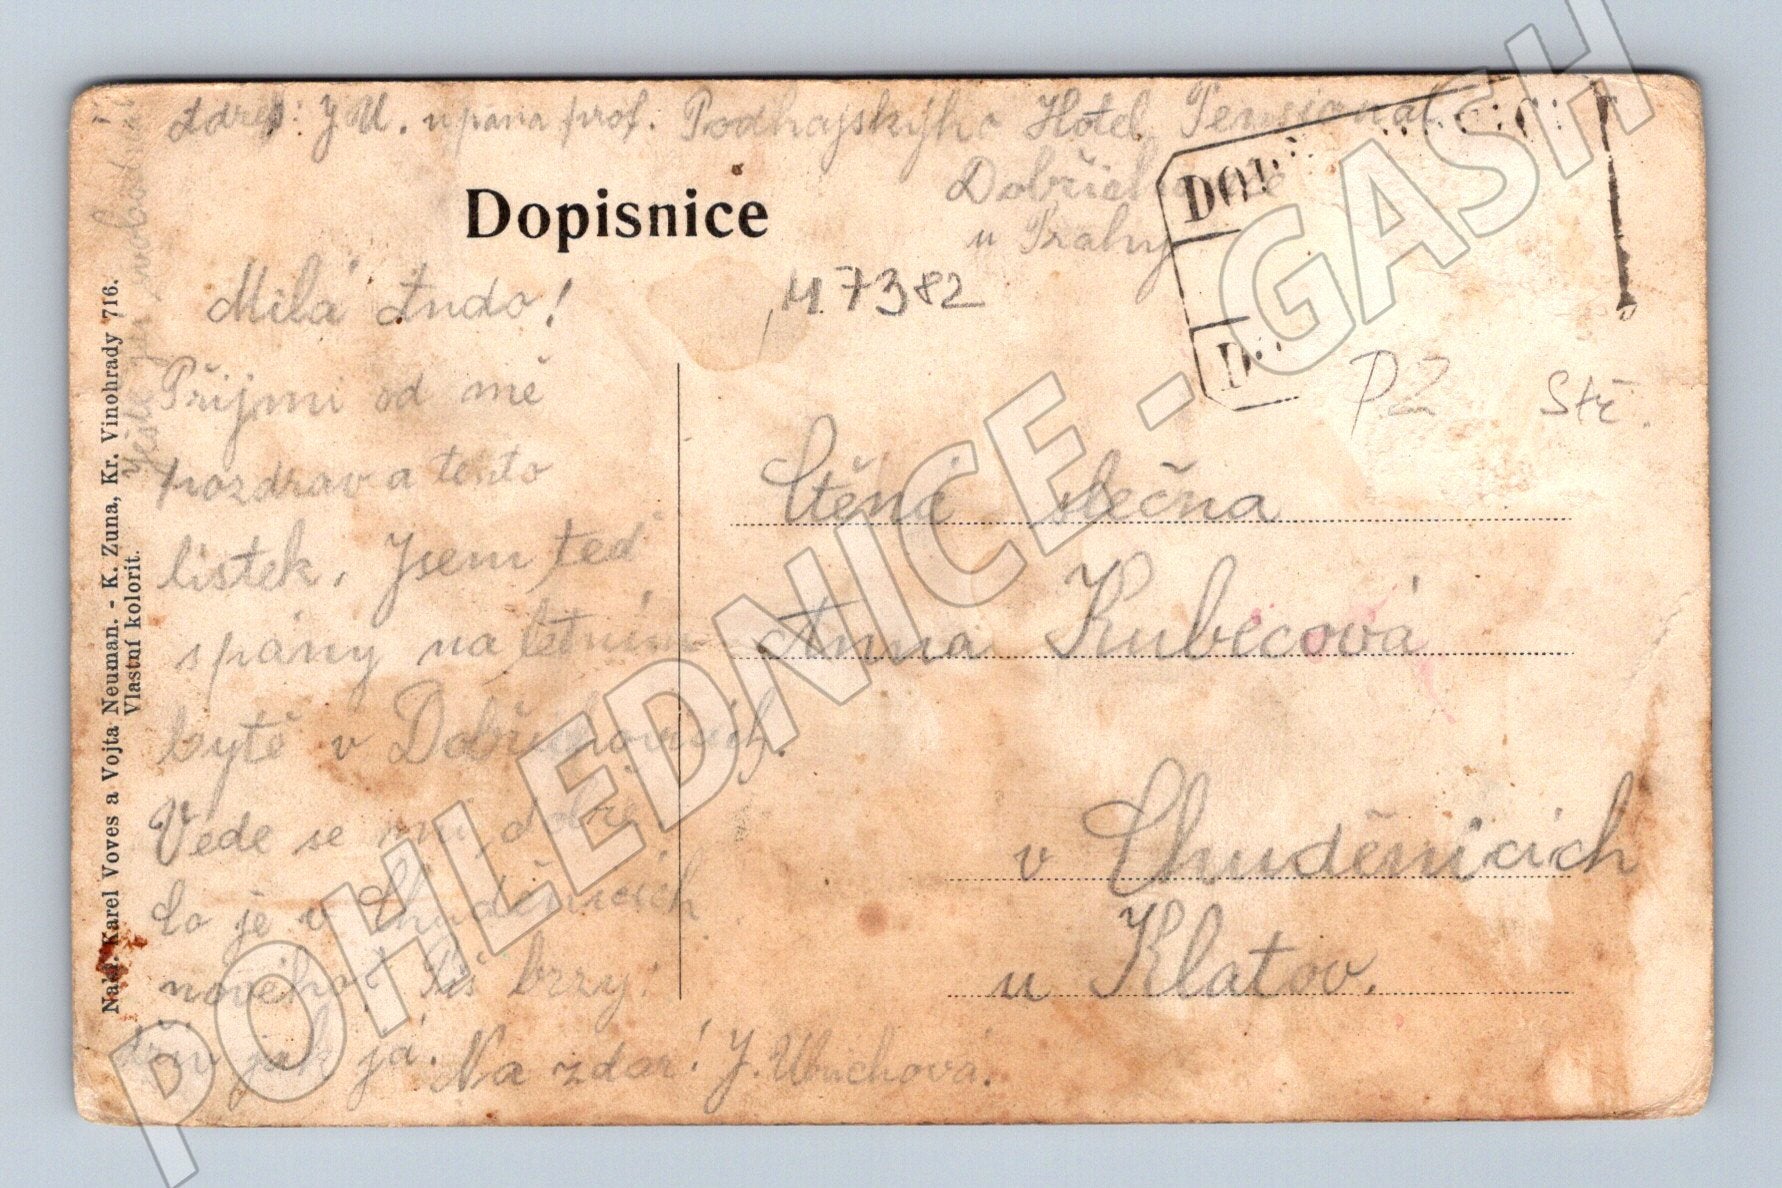 Adres: J. U. u pána prof. Podhajskýho Hotel Pensionat
Dobřichovice
u Prahy
Dopisnice
M 7382
Milá Ando!
Přijmi od mě
pozdrav a tento
lístek. Jsem teď
s pány na letním
bytě v Dobřichovicích.
Vede se mi dobře,
co je v Chuděnicích
nového? Piš brzy
jak já. Na zdar! J.
Ještě jen svobodná
DOP
D
PZ Stř.
Ctěná slečna
Anna Kubecová
v Chuděnicích
u Klatov.
Nakl. Karel Voves a Vojta Neuman. - K. Zuna, Kr. Vinohrady 716.
Vlastní kolorit.
POHLEDNICE - GASH